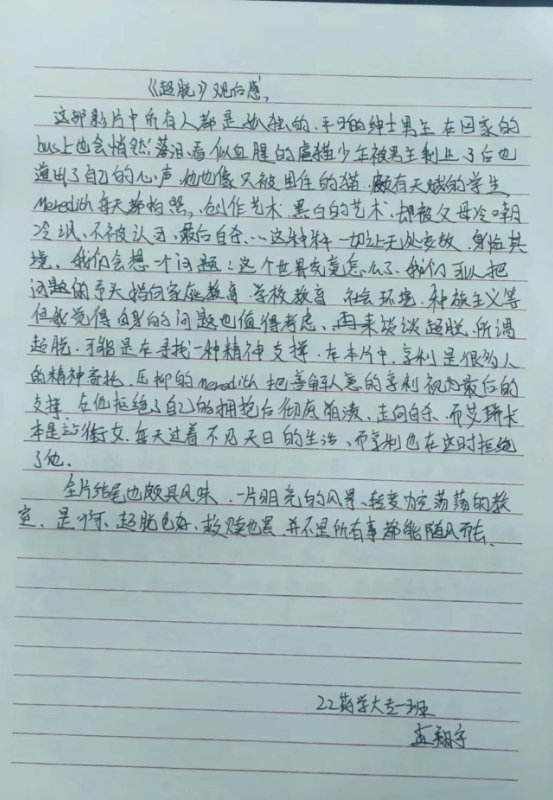 《超脱》观后感
这部影片中所有人都是孤独的,平日的绅士男主在回家的
bus上也会悄然落泪,看似血腥的虐猫少年被男主制止了后也
道出了自己的心声,他也像只被困住的猫,颇有天赋的学生
Meredith每天都拍照,创作艺术,黑白的艺术,却被父母冷嘲
冷讽,不被认可,最后自杀…这种种一切让无处安放,身临其
境,我们会想一个问题:这个世界究竟怎么了,我们可以把
问题的矛头指向家庭教育,学校教育,社会环境,种族主义等
但我觉得自身的问题也值得考虑,再来谈谈超脱,所谓
超脱,可能是在寻找一种精神支撑,在本片中,亨利是很多人
的精神寄托,压抑的Meredith把善解人意的亨利视为最后的
支撑,在他拒绝了自己的拥抱后彻底崩溃,走向自杀,而艾瑞卡
本是站街女,每天过着不见天日的生活,而亨利也在这时拒绝
了他。
全片结尾也颇具风味,一片明亮的风景,转变为空荡荡的教
室,是啊,超脱也好,救赎也罢,并不是所有事都能随风而去
22药学大专一班
孟翔宇